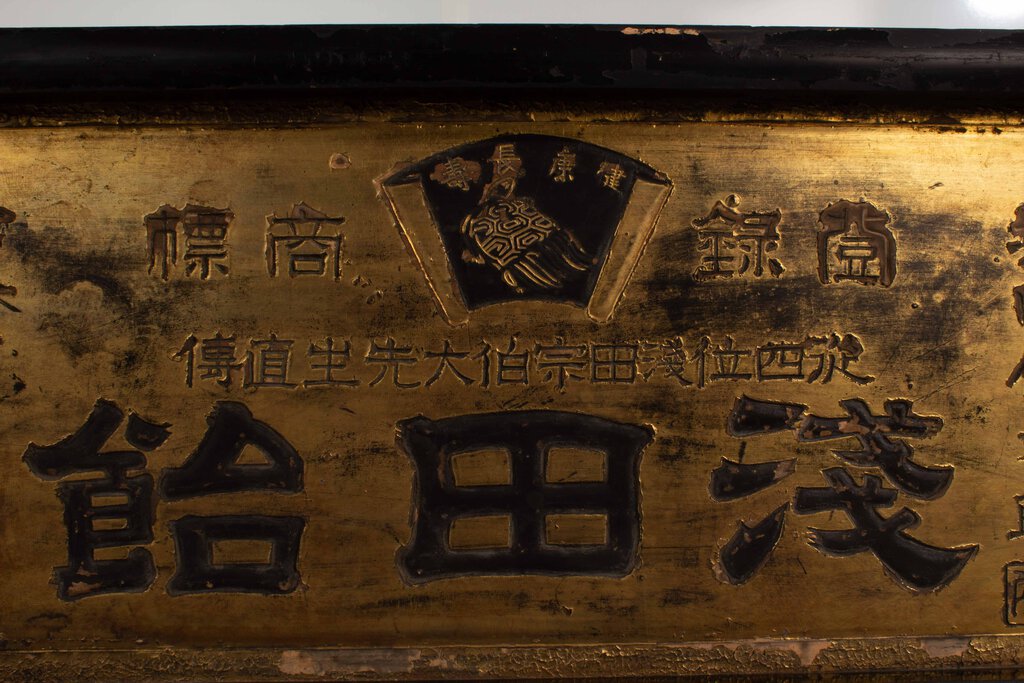 健康長壽
登録商標
從四位淺田宗伯大先生直傳
淺田飴